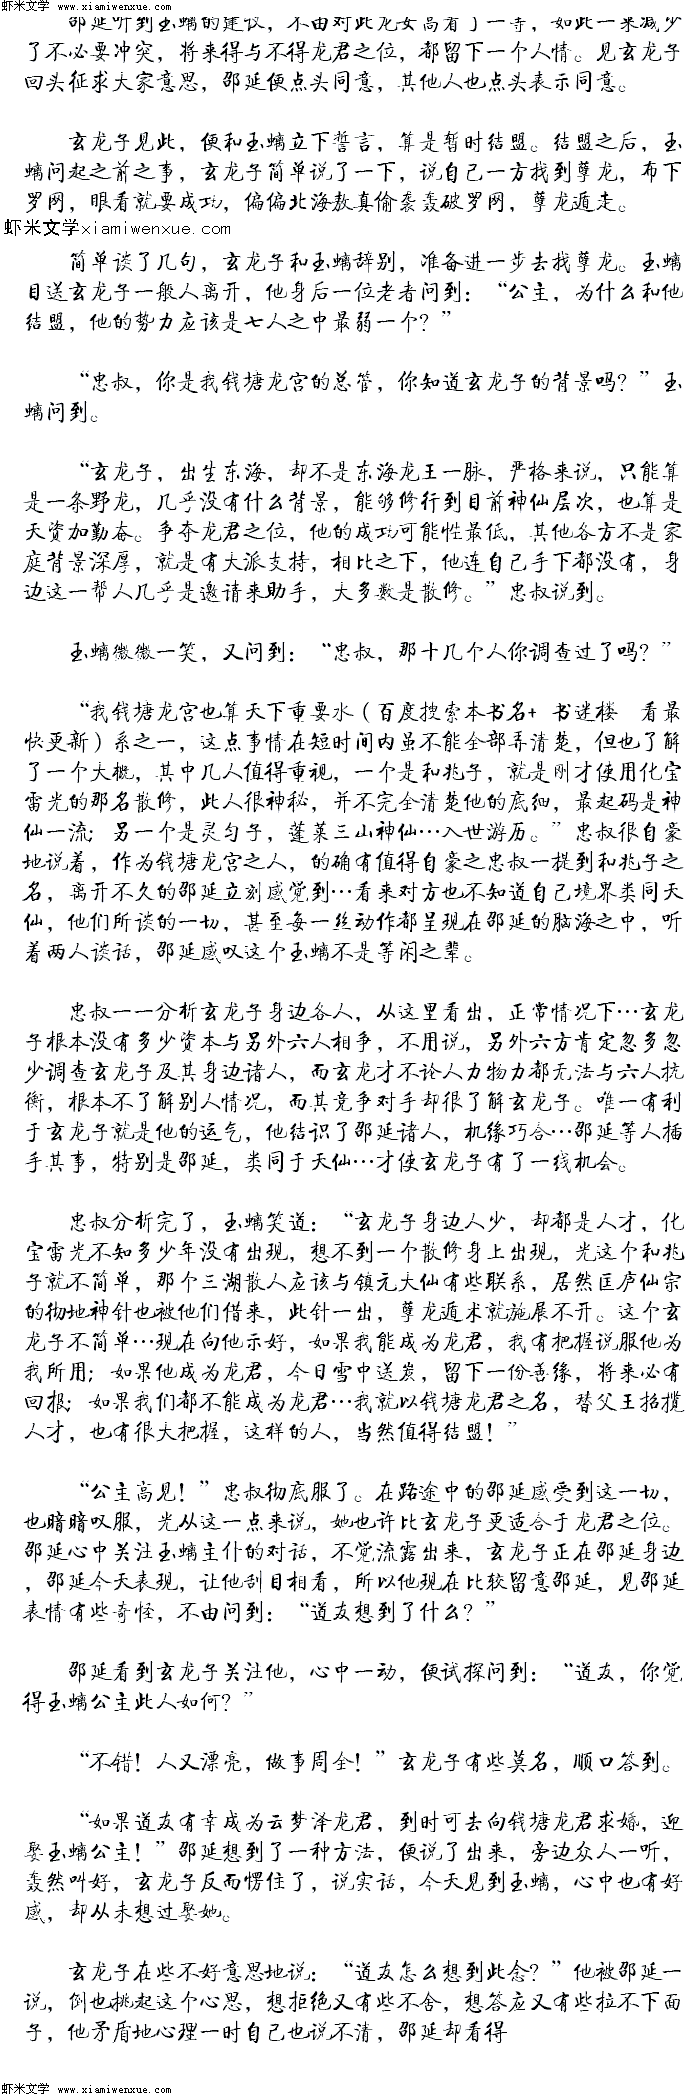 虾米文学 www.xiamiwenxue.com
邵延听到玉螭的建议，不由对此龙女高看了一等，如此一来减少
了不必要冲突，将来得与不得龙君之位，都留下一个人情。见玄龙子
回头征求大家意思，邵延便点头同意，其他人也点头表示同意。
玄龙子见此，便和玉螭立下誓言，算是暂时结盟。结盟之后，玉
螭问起之前之事，玄龙子简单说了一下，说自己一方找到孽龙，布下
罗网，眼看就要成功，偏偏北海敖真偷袭轰破罗网，孽龙遁走。
虾米文学xiamiwenxue.com
简单谈了几句，玄龙子和玉螭辞别，准备进一步去找孽龙。玉螭
目送玄龙子一般人离开，他身后一位老者问到：“公主，为什么和他
结盟，他的势力应该是七人之中最弱一个？”
“忠叔，你是我钱塘龙宫的总管，你知道玄龙子的背景吗？”玉
螭问到。
“玄龙子，出生东海，却不是东海龙王一脉，严格来说，只能算
是一条野龙，几乎没有什么背景，能够修行到目前神仙层次，也算是
天资加勤奋。争夺龙君之位，他的成功可能性最低，其他各方不是家
庭背景深厚，就是有大派支持，相比之下，他连自己手下都没有，身
边这一帮人几乎是邀请来助手，大多数是散修。”忠叔说到。
玉螭微微一笑，又问到：“忠叔，那十几个人你调查过了吗？”
“我钱塘龙宫也算天下重要水（百度搜索本书名+ 书迷楼 看最
快更新）系之一，这点事情在短时间内虽不能全部弄清楚，但也了解
了一个大概，其中几人值得重视，一个是和兆子，就是刚才使用化宝
雷光的那名散修，此人很神秘，并不完全清楚他的底细，最起码是神
仙一流；另一个是灵匀子，蓬莱三山神仙…入世游历。”忠叔很自豪
地说着，作为钱塘龙宫之人，的确有值得自豪之忠叔一提到和兆子之
名，离开不久的邵延立刻感觉到…看来对方也不知道自己境界类同天
仙，他们所谈的一切，甚至每一丝动作都呈现在邵延的脑海之中，听
着两人谈话，邵延感叹这个玉螭不是等闲之辈。
忠叔一一分析玄龙子身边各人，从这里看出，正常情况下…玄龙
子根本没有多少资本与另外六人相争，不用说，另外六方肯定忽多忽
少调查玄龙子及其身边诸人，而玄龙才不论人力物力都无法与六人抗
衡，根本不了解别人情况，而其竞争对手却很了解玄龙子。唯一有利
于玄龙子就是他的运气，他结识了邵延诸人，机缘巧合…邵延等人插
手其事，特别是邵延，类同于天仙…才使玄龙子有了一线机会。
忠叔分析完了，玉螭笑道：“玄龙子身边人少，却都是人才，化
宝雷光不知多少年没有出现，想不到一个散修身上出现，光这个和兆
子就不简单，那个三湖散人应该与镇元大仙有些联系，居然匡庐仙宗
的物地神针也被他们借来，此针一出，孽龙遁术就施展不开。这个玄
龙子不简单…现在向他示好，如果我能成为龙君，我有把握说服他为
我所用；如果他成为龙君，今日雪中送炭，留下一份善缘，将来必有
回报；如果我们都不能成为龙君…我就以钱塘龙君之名，替父王招揽
人才，也有很大把握，这样的人，当然值得结盟！”
“公主高见！”忠叔彻底服了。在路途中的邵延感受到这一切，
也暗暗叹服，光从这一点来说，她也许比玄龙子更适合于龙君之位。
邵延心中关注玉螭主仆的对话，不觉流露出来，玄龙子正在邵延身边
，邵延今天表现，让他刮目相看，所以他现在比较留意邵延，见邵延
表情有些奇怪，不由问到：“道友想到了什么？”
邵延看到玄龙子关注他，心中一动，便试探问到：“道友，你觉
得玉螭公主此人如何？”
“不错！人又漂亮，做事周全！”玄龙子有些莫名，顺口答到。
“如果道友有幸成为云梦泽龙君，到时可去向钱塘龙君求婚，迎
娶玉螭公主！”邵延想到了一种方法，便说了出来，旁边众人一听，
轰然叫好，玄龙子反而愣住了，说实话，今天见到玉螭，心中也有好
感，却从未想过娶她。
玄龙子在些不好意思地说：“道友怎么想到此念？”他被邵延一
说，倒也挑起这个心思，想拒绝又有些不舍，想答应又有些拉不下面
子，他矛盾地心理一时自己也说不清，邵延却看得
虾米文学 www.xiamiwenxue.com